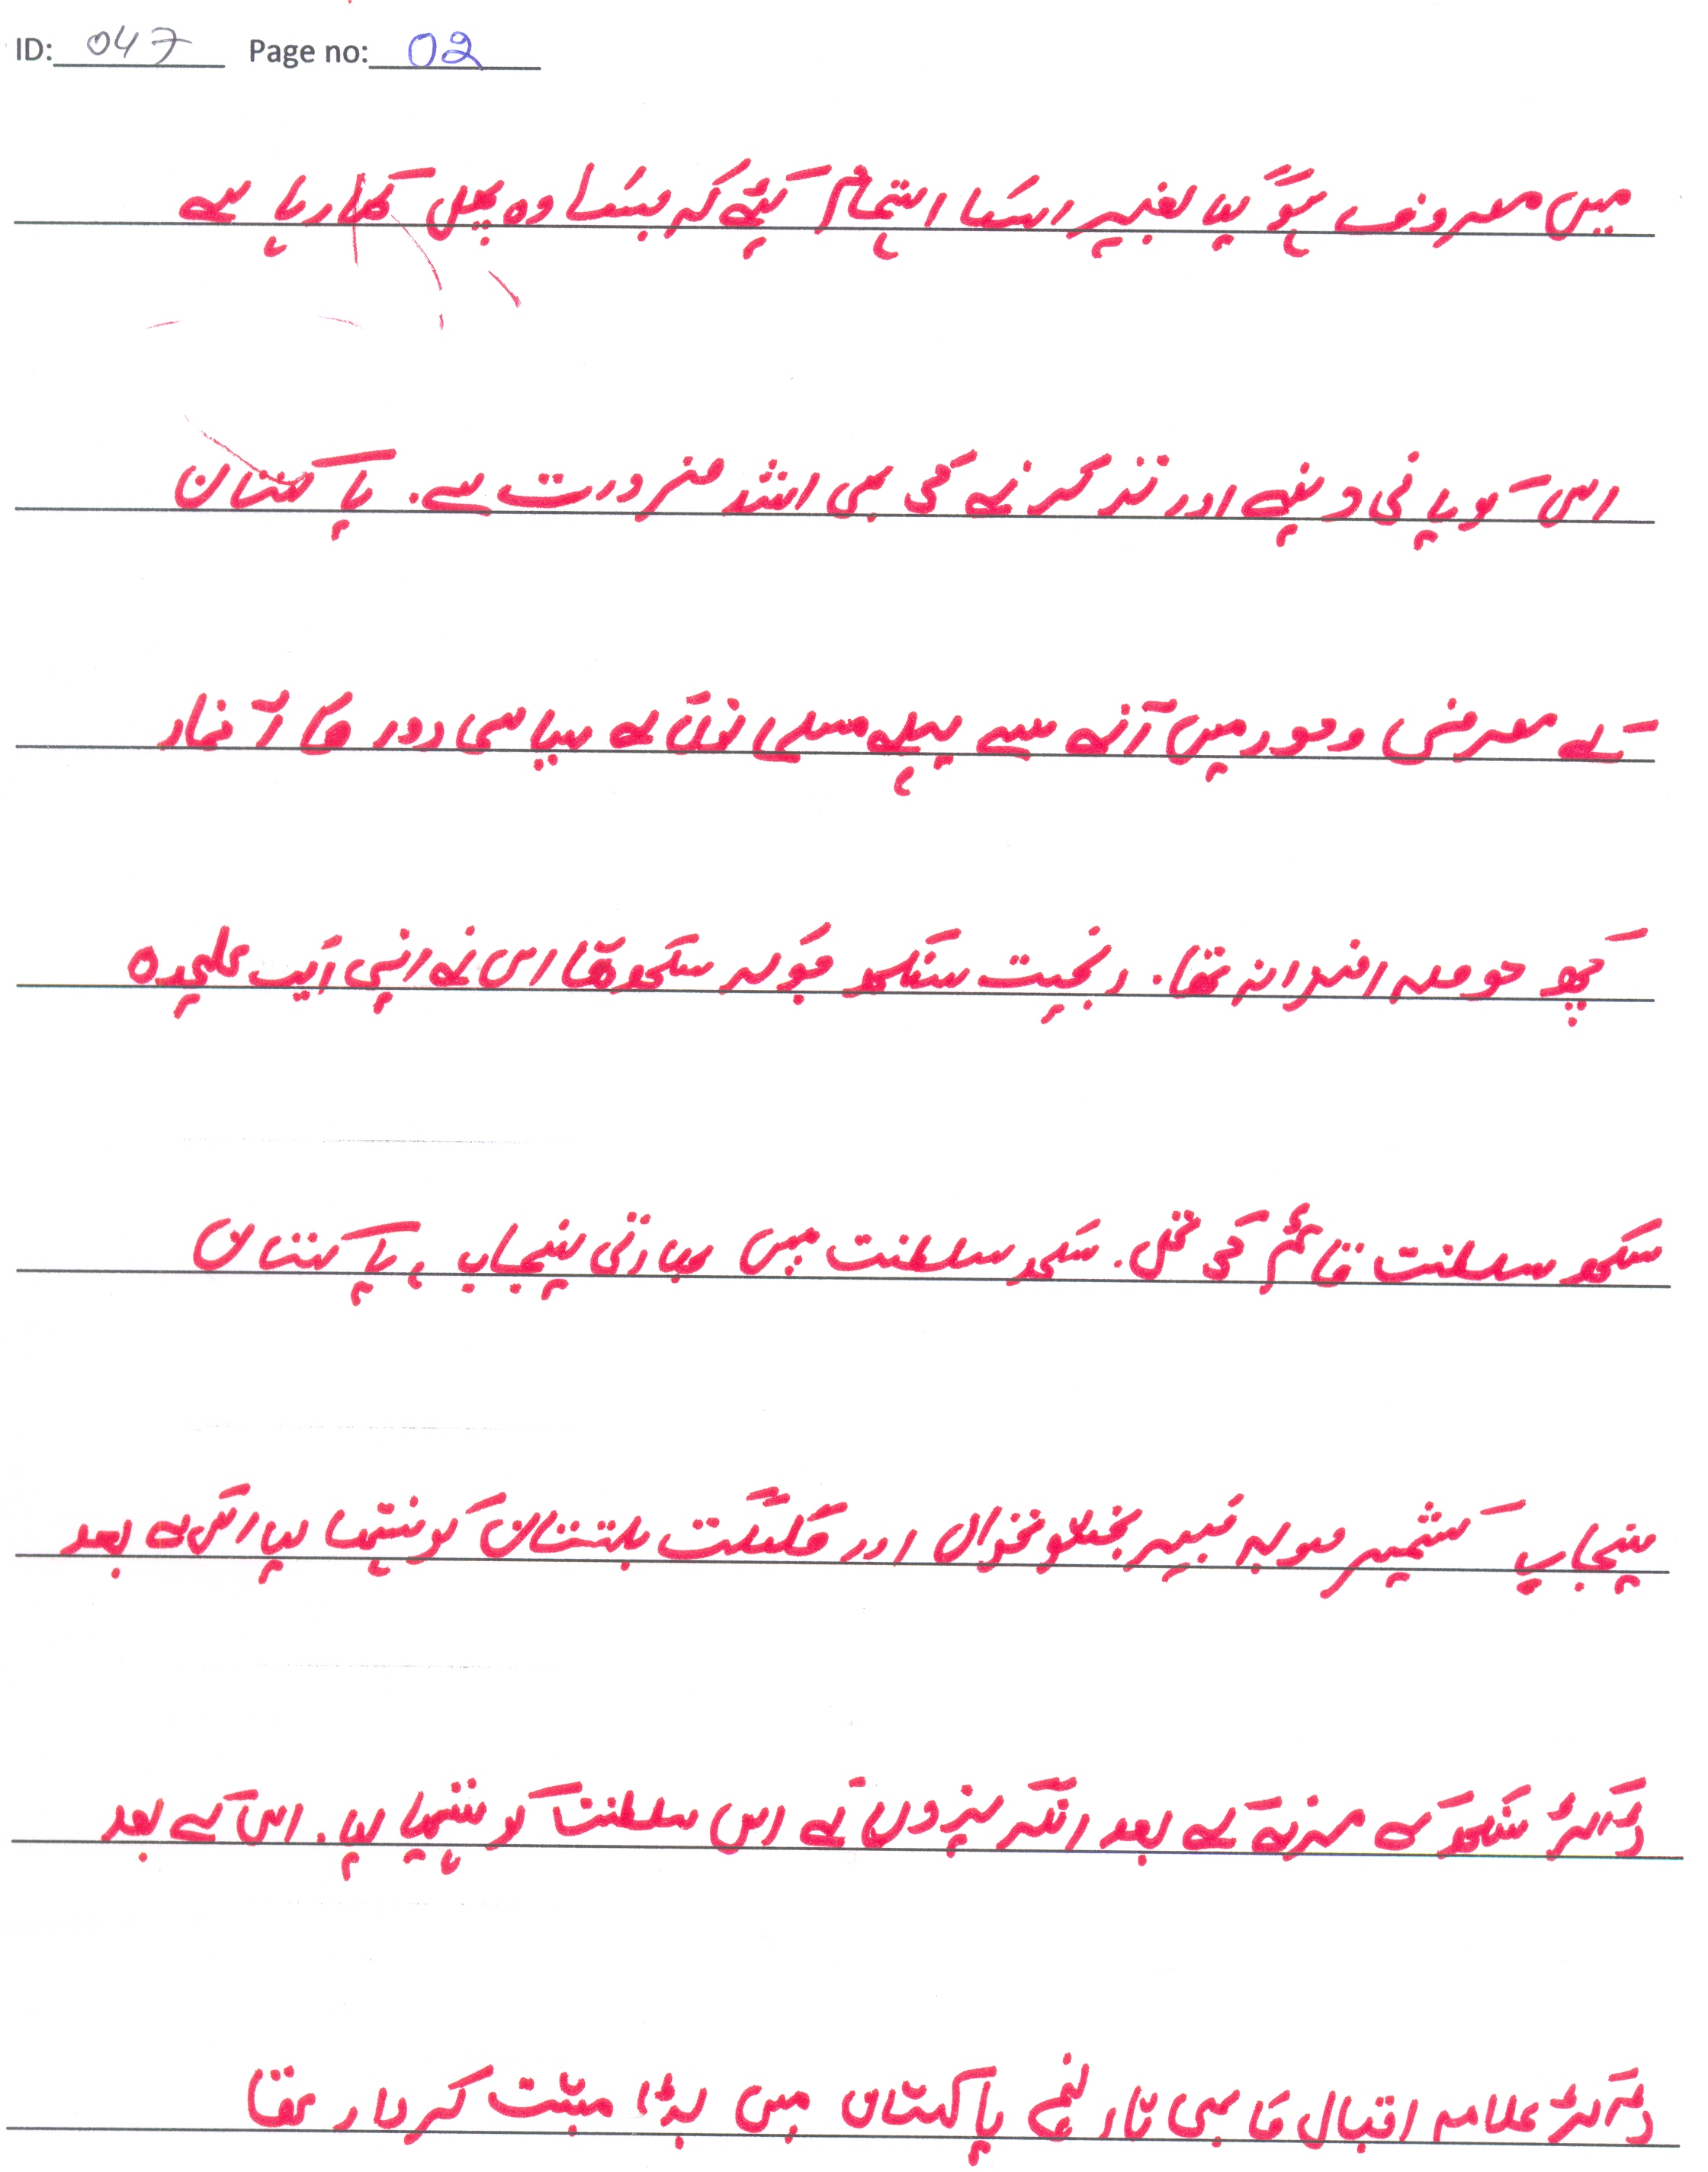 ID: 047 Page no: 02
میں مصروف ہو گیا بغیر اسکا اہتمام کیئے کہ جسکا وہ پھل کھا رہا ہے
اس کو پانی دینے اور تر کرنے کی بھی اشد ضرورت ہے۔ پاکستان
کے معرض وجود میں آنے سے پہلے مسلمانوں کے سیاسی دور کا آغاز
کچھ حوصلہ افزا نہ تھا۔ رنجیت سنگھ جو کہ سکھ تھا اس نے اپنی ایک علیحدہ
سکھ سلطنت قائم کی تھی۔ سکھ سلطنت میں بھارتی پنجاب، پاکستان
پنجاب کشمیر صوبہ خیبر پختونخواں اور گلگت بلتستان کو ہتھیا لیا اس کے بعد
ڈاکڑ سنگھ کے مرنے کے بعد انگریزوں نے اس سلطنت کو ہتھیا لیا۔ اس کے بعد
ڈاکڑ علامہ اقبال کا بھی تاریخ پاکستان میں بڑا مثبت کردار تھا